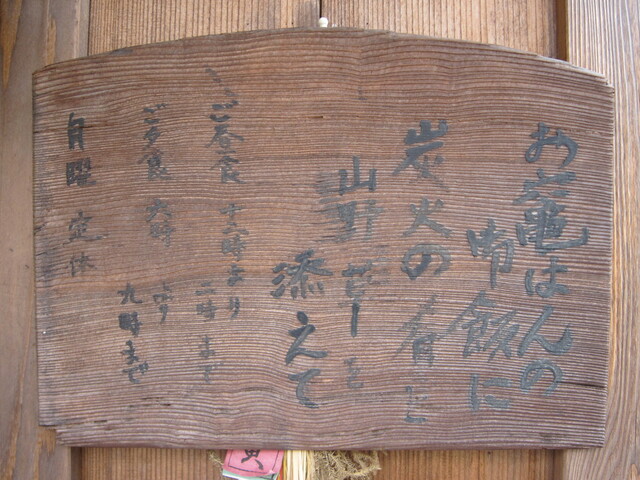 お登亀はんの
御飯に
炭火の香と
山野草を
添えて
ご昼食 十二時より
二時まで
ご夕食 六時より
九時まで
月曜定休
寅